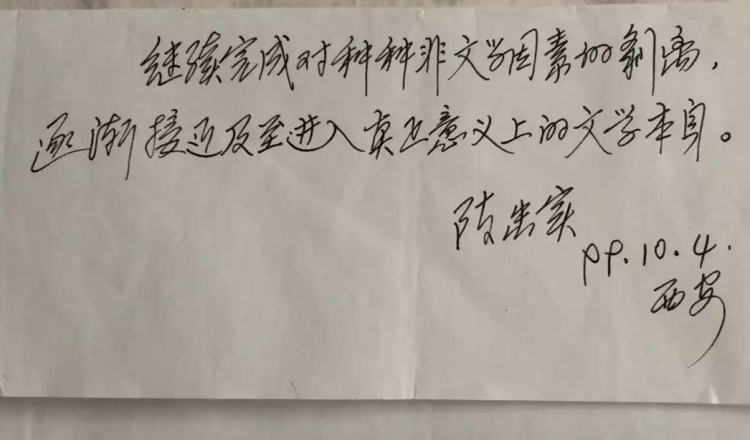 继续完成对种种非文学因素的剥离，
逐渐接近及至进入真正意义上的文学本身。
陈忠实
99.10.4.
西安